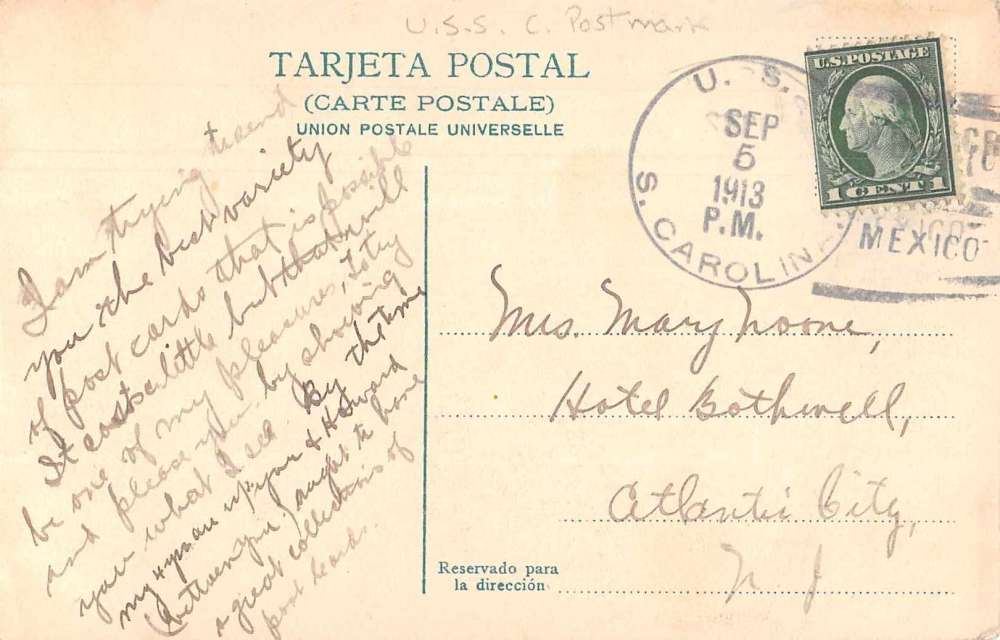 U.S.S. C. Postmark
TARJETA POSTAL
(CARTE POSTALE)
UNION POSTALE UNIVERSELLE
U. S. S.
SEP
5
1913
P.M.
S. CAROLINA
U.S. POSTAGE
1 CENT 1
MEXICO
I am trying to send
you the best variety
of post cards that is possible
It costs a little but that will
be one of my pleasures, to try
and please you by showing
you what I see. By the time
my & you an up you & Howard
(between you) ought to have
a great collections of
post cards.
Mrs. Mary Noone,
Hotel Bothwell,
Atlantic City,
N J
Reservado para
la dirección